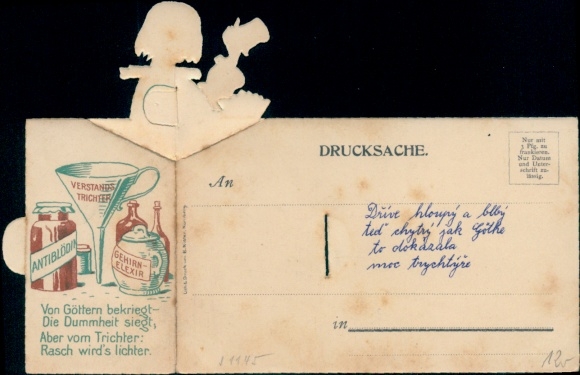 VERSTANDS-
TRICHTER
ANTIBLÖDIN
GEHIRN-
ELEXIR
Von Göttern bekriegt–
Die Dummheit siegt,
Aber vom Trichter:
Rasch wird's lichter.
DRUCKSACHE.
Nur mit
3 Pfg. zu
frankieren.
Nur Datum
und Unter-
schrift zu-
lässig.
An
Dříve hloupý a blbý
teď chytrý jak Göthe
to dokázala
moc trychtýře
in